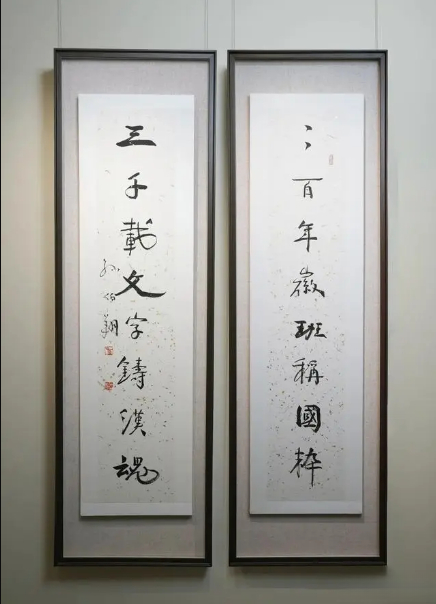 二百年徽班稱國粹
三千載文字鑄漢魂
孫伯翔